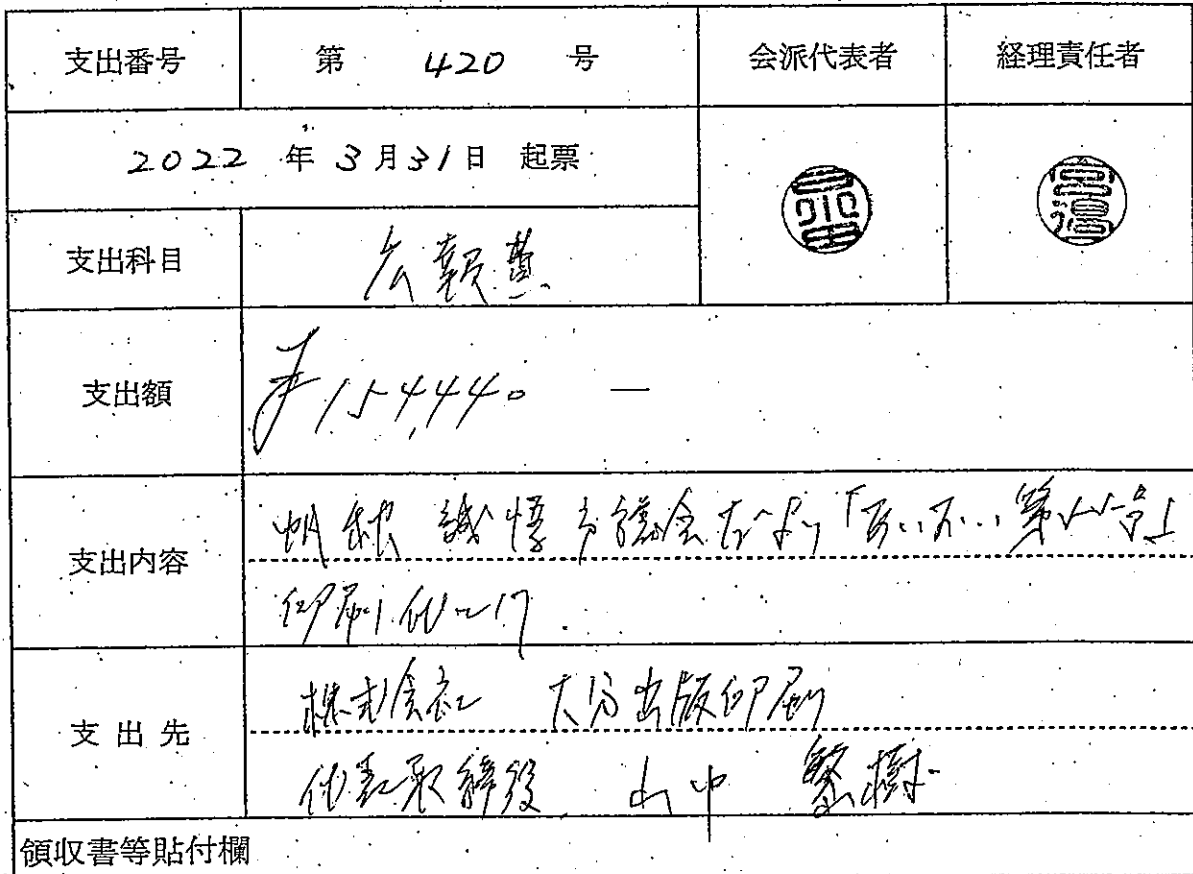 支出番号 第 420 号 会派代表者 経理責任者
2022 年 3月31日 起票
支出科目 広報費
支出額 ¥154,440 —
支出内容 帆秋 誠悟 市議会だより「 第 号」
印刷代
支出先 株式会社 大分出版印刷
代表取締役 山中 繁樹
領収書等貼付欄